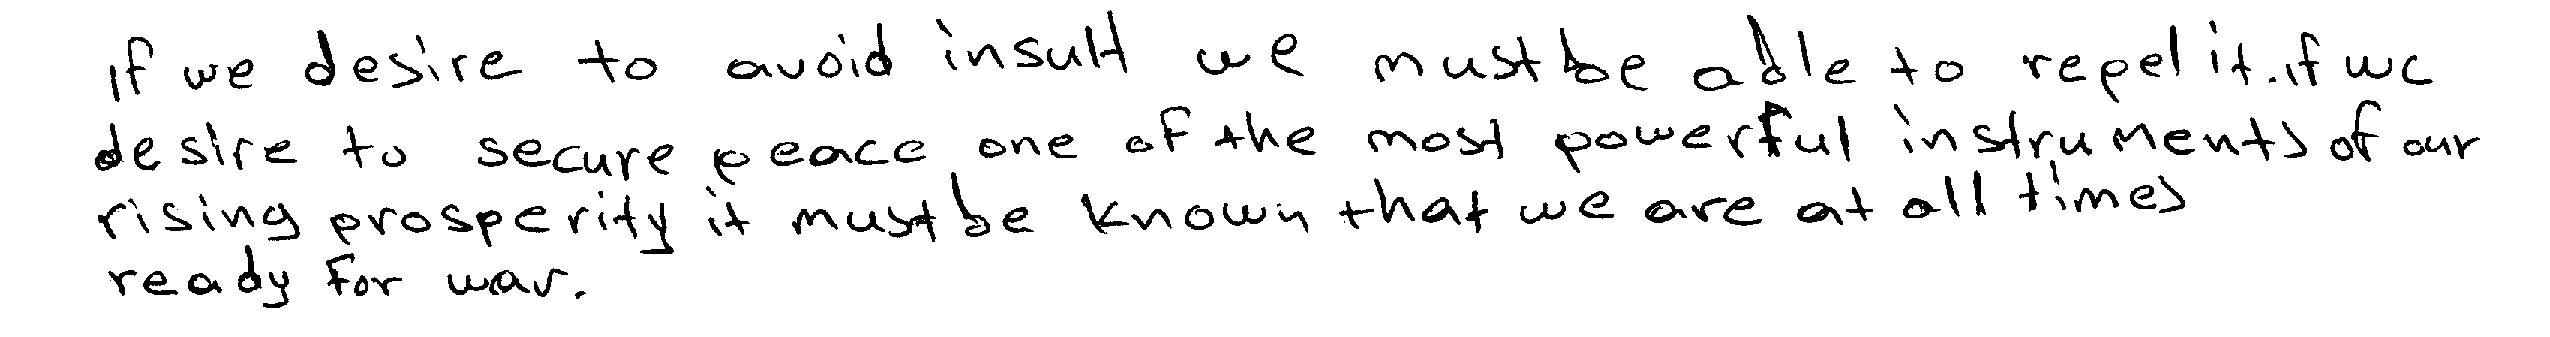 if we desire to avoid insult we must be able to repel it. if we
desire to secure peace one of the most powerful instruments of our
rising prosperity it must be known that we are at all times
ready for war.